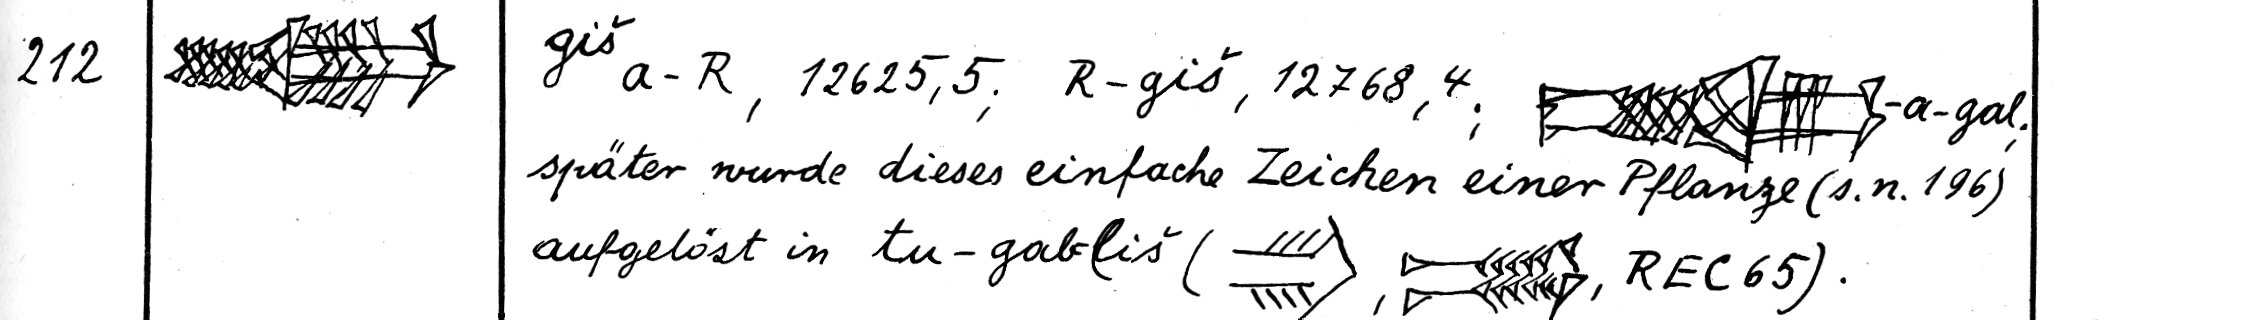 212 giš a-R, 12625,5; R-giš, 12768,4; -a-gal;
später wurde dieses einfache Zeichen einer Pflanze (s.n. 196)
aufgelöst in tu-gabliš ( , , REC 65).